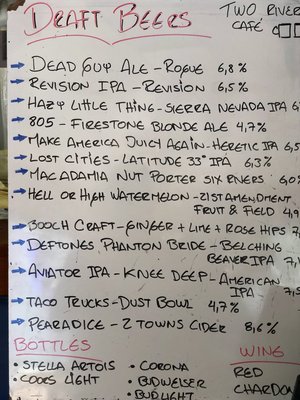 DRAFT BEERS
TWO RIVER
CAFÉ
DEAD GUY ALE - ROGUE 6,8%
REVISION IPA - REVISION 6,5%
HAZY LITTLE THING - SIERRA NEVADA IPA
805 - FIRESTONE BLONDE ALE 4,7%
MAKE AMERICA JUICY AGAIN - HERETIC IPA 6,5
LOST CITIES - LATITUDE 33° IPA 6,3%
MACADAMIA NUT PORTER SIX RIVERS 6,0
HELL OR HIGH WATERMELON - 21ST AMENDMENT
FRUIT & FIELD 4,9
BOOCH CRAFT - GINGER + LIME + ROSE HIPS
DEFTONES PHANTON BRIDE - BELCHING
BEAVER IPA
AVIATOR IPA - KNEE DEEP - AMERICAN
IPA
TACO TRUCKS - DUST BOWL 4,7%
PEARADICE - 2 TOWNS CIDER 8,6%
BOTTLES
WINE
• STELLA ARTOIS
• CORONA
RED
• COORS LIGHT
• BUDWEISER
CHARDON
• BUD LIGHT